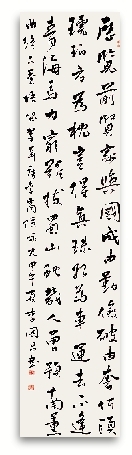 歷覽前賢家與國成由勤儉破由奢何須
琥珀方為枕豈得真珠始為車運去不逢
青海馬力窮難拔蜀山蛇幾人曾預南薰
曲終古蒼梧哭翠華李商隱詠史甲午夏李國